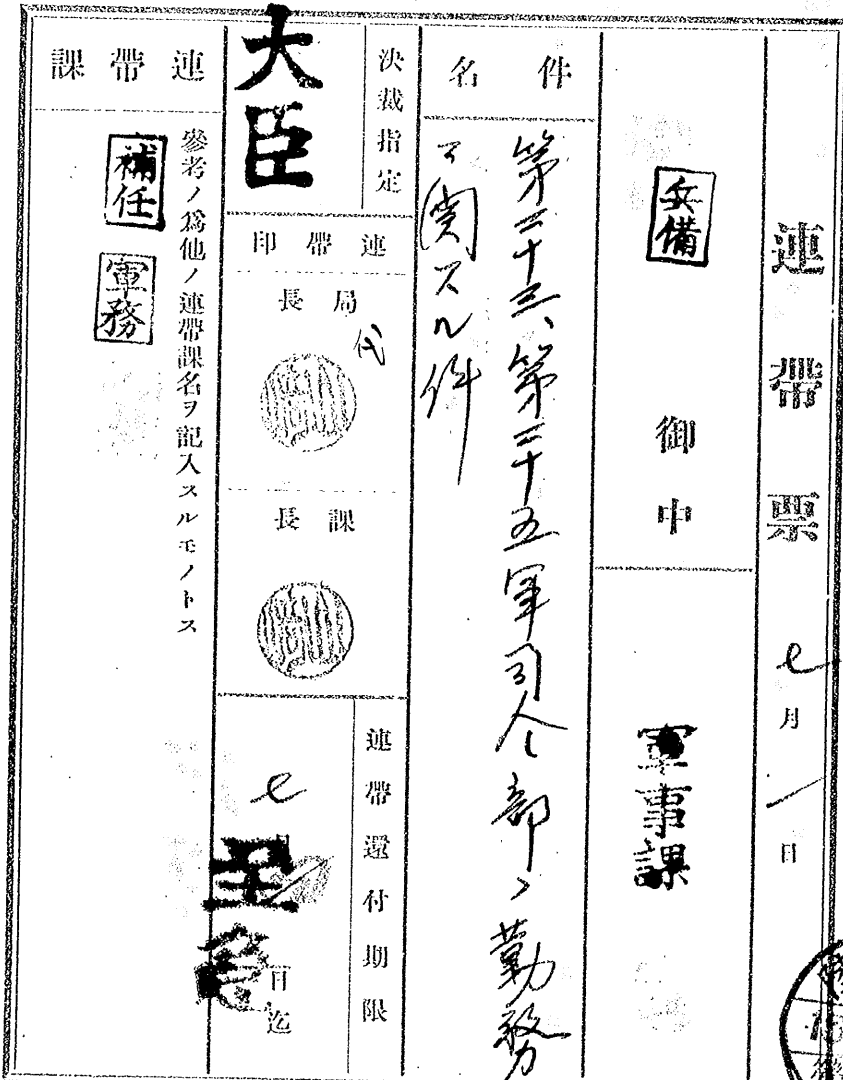 連帶票
七月一日
兵備
御中
軍事課
件名
第二十三、第二十五軍司令部ノ勤務
ニ関スル件
決裁指定
大臣
連帶印
局長
代
課長
連帶還付期限
七月一日迄
至急
連帶課
參考ノ爲他ノ連帶課名ヲ記入スルモノトス
補任
軍務